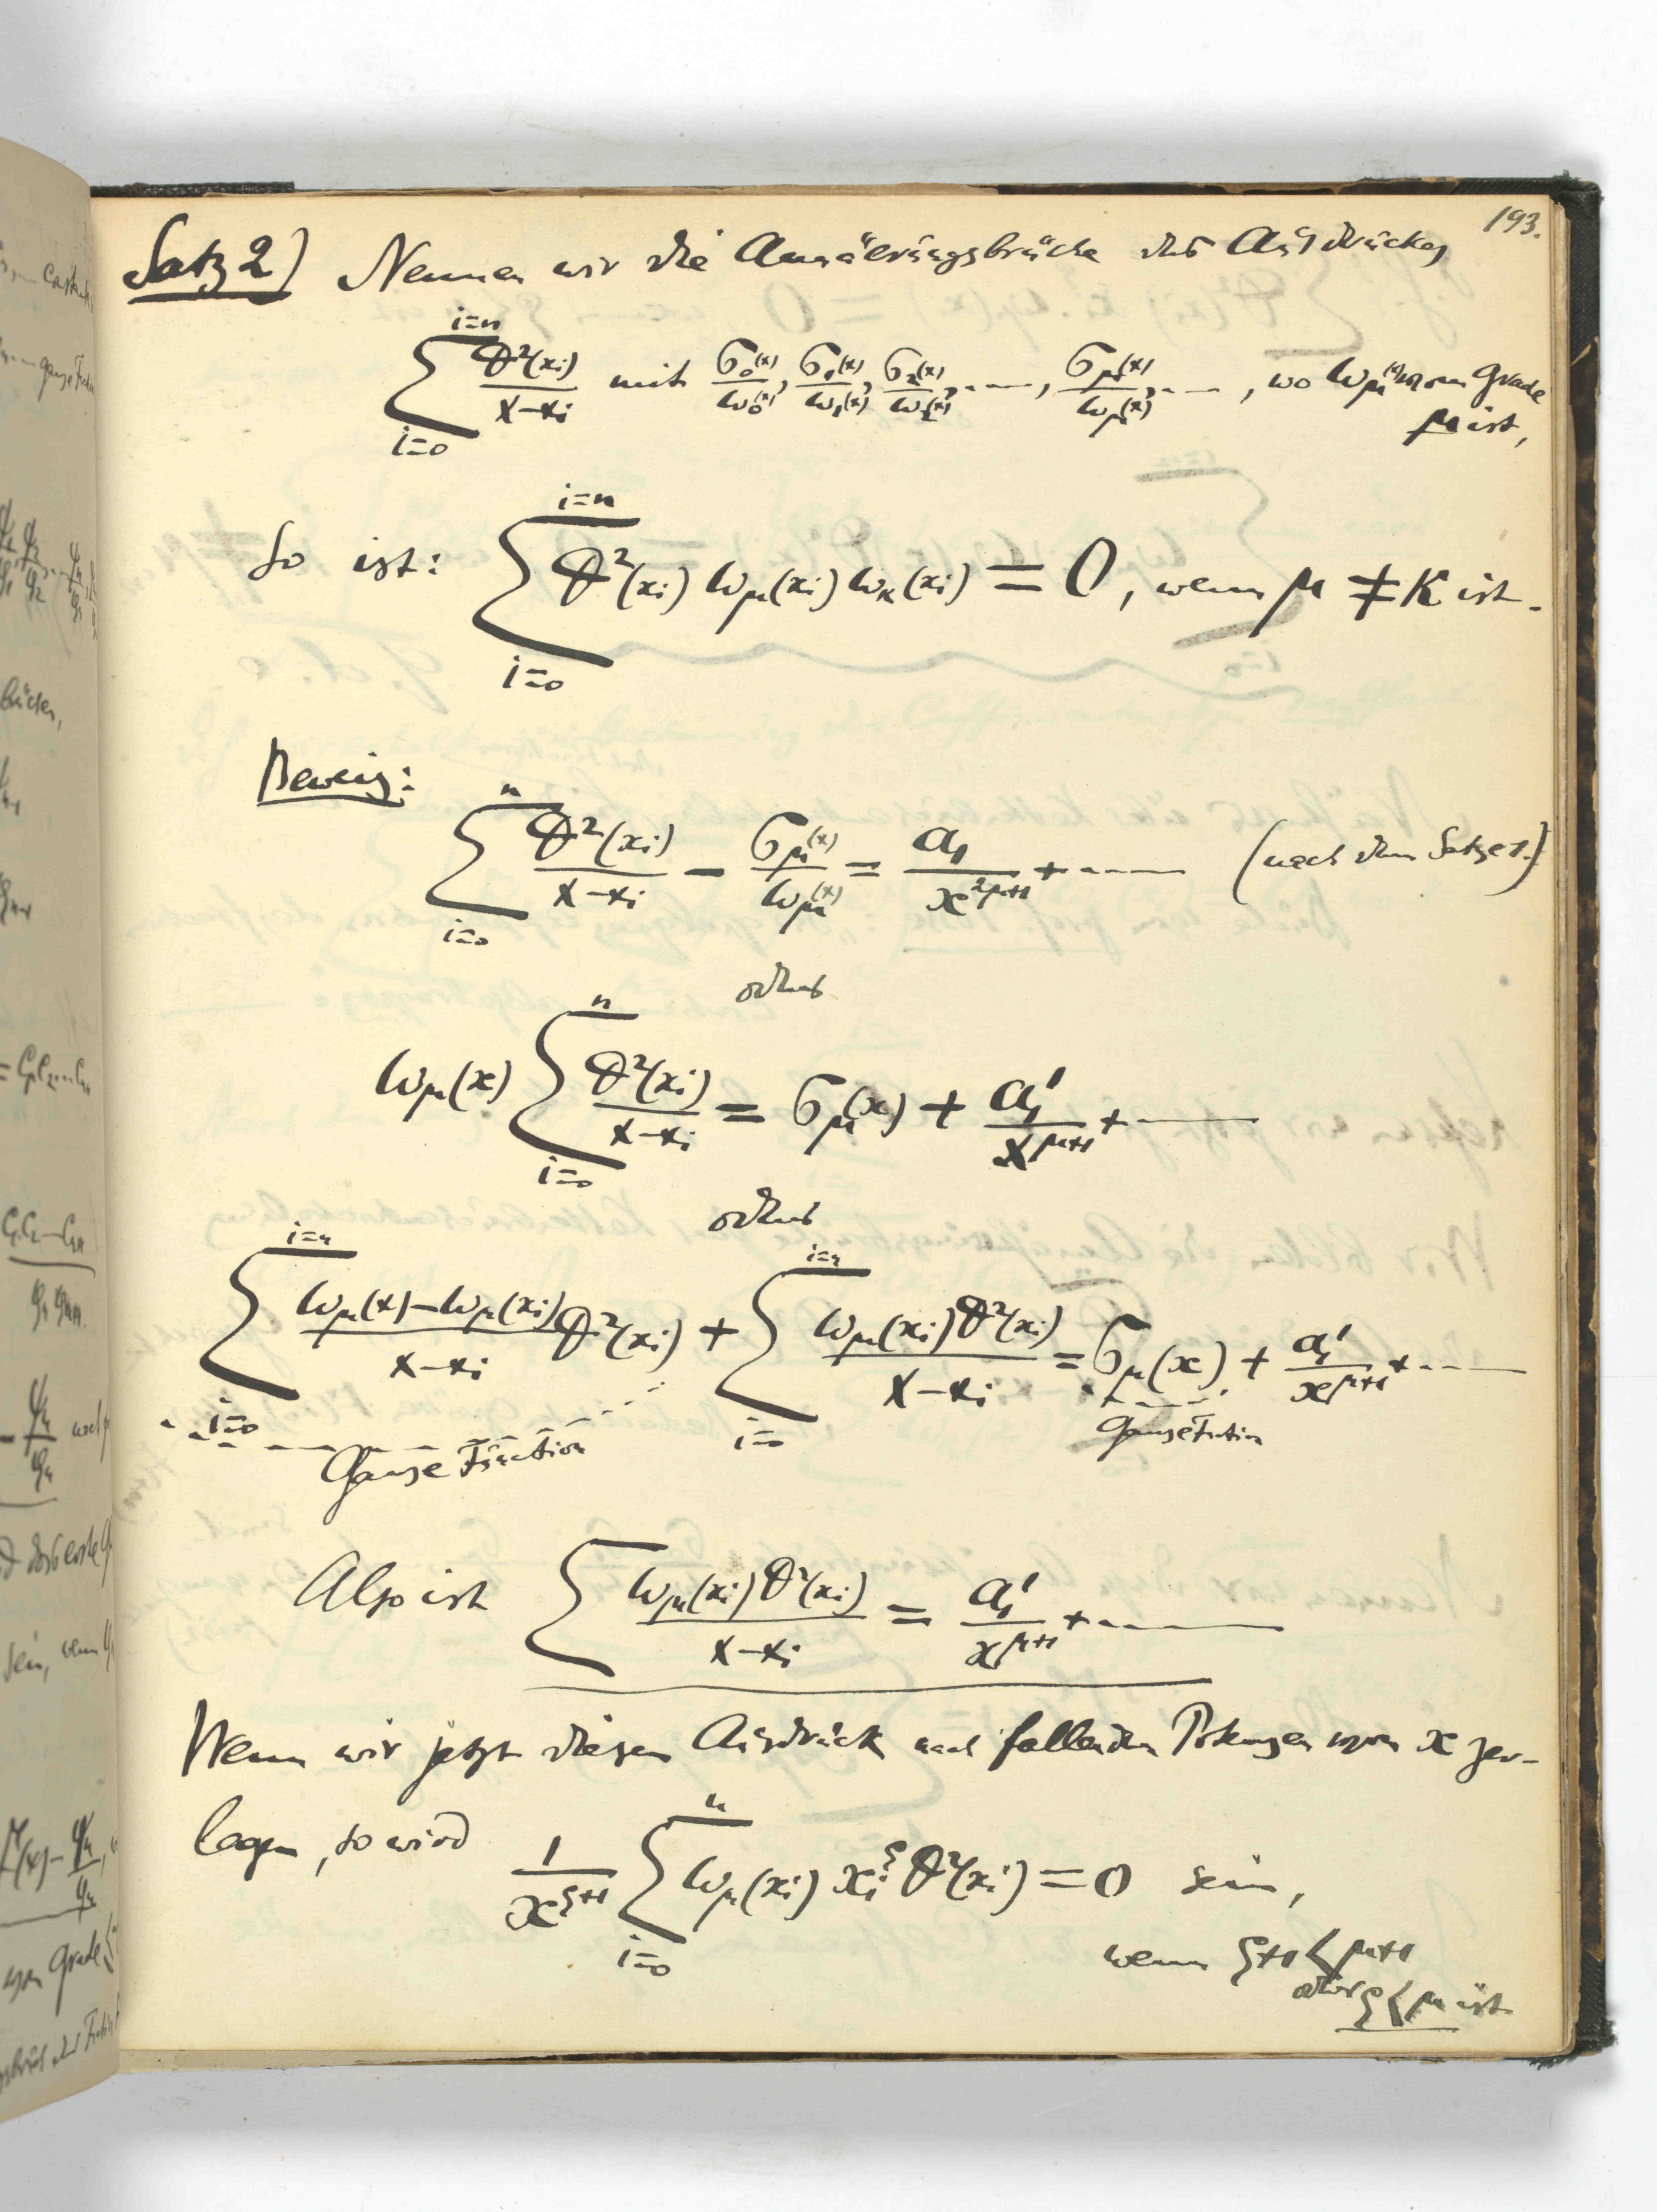 193.
Satz 2) Nennen wir die Annäerungsbrüche des Ausdruckes
\sum_{i=0}^{i=n} \frac{\theta^2(x_i)}{x-x_i} mit \frac{\sigma_0(x)}{\omega_0(x)}, \frac{\sigma_1(x)}{\omega_1(x)}, \frac{\sigma_2(x)}{\omega_2(x)}, ----, \frac{\sigma_\mu(x)}{\omega_\mu(x)}, ---, wo \omega_\mu(x) vom Grade
\mu ist,
So ist: \sum_{i=0}^{i=n} \theta^2(x_i) \omega_\mu(x_i) \omega_\kappa(x_i) = 0, wenn \mu \neq \kappa ist.
Beweis:
\sum_{i=0}^{n} \frac{\theta^2(x_i)}{x-x_i} - \frac{\sigma_\mu(x)}{\omega_\mu(x)} = \frac{a_1}{x^{2\mu+1}} + ---- (nach dem Satze 1.)
oder
\omega_\mu(x) \sum_{i=0}^{n} \frac{\theta^2(x_i)}{x-x_i} = \sigma_\mu(x) + \frac{a_1'}{x^{\mu+1}} + ----
oder
\sum_{i=0}^{i=n} \frac{\omega_\mu(x)-\omega_\mu(x_i)}{x-x_i} \theta^2(x_i) + \sum_{i=0}^{i=n} \frac{\omega_\mu(x_i)\theta^2(x_i)}{x-x_i} = \sigma_\mu(x) + \frac{a_1'}{x^{\mu+1}} + ----
Ganze Function Ganze Function
Also ist \sum \frac{\omega_\mu(x_i)\theta^2(x_i)}{x-x_i} = \frac{a_1'}{x^{\mu+1}} + ----
Wenn wir jetzt diesen Ausdruck nach fallenden Potenzen von x zer-
legen, so wird \frac{1}{x^{\xi+1}} \sum_{i=0}^{n} \omega_\mu(x_i) x_i^\xi \theta^2(x_i) = 0 sein,
wenn \xi+1 < \mu+1
oder \xi < \mu ist